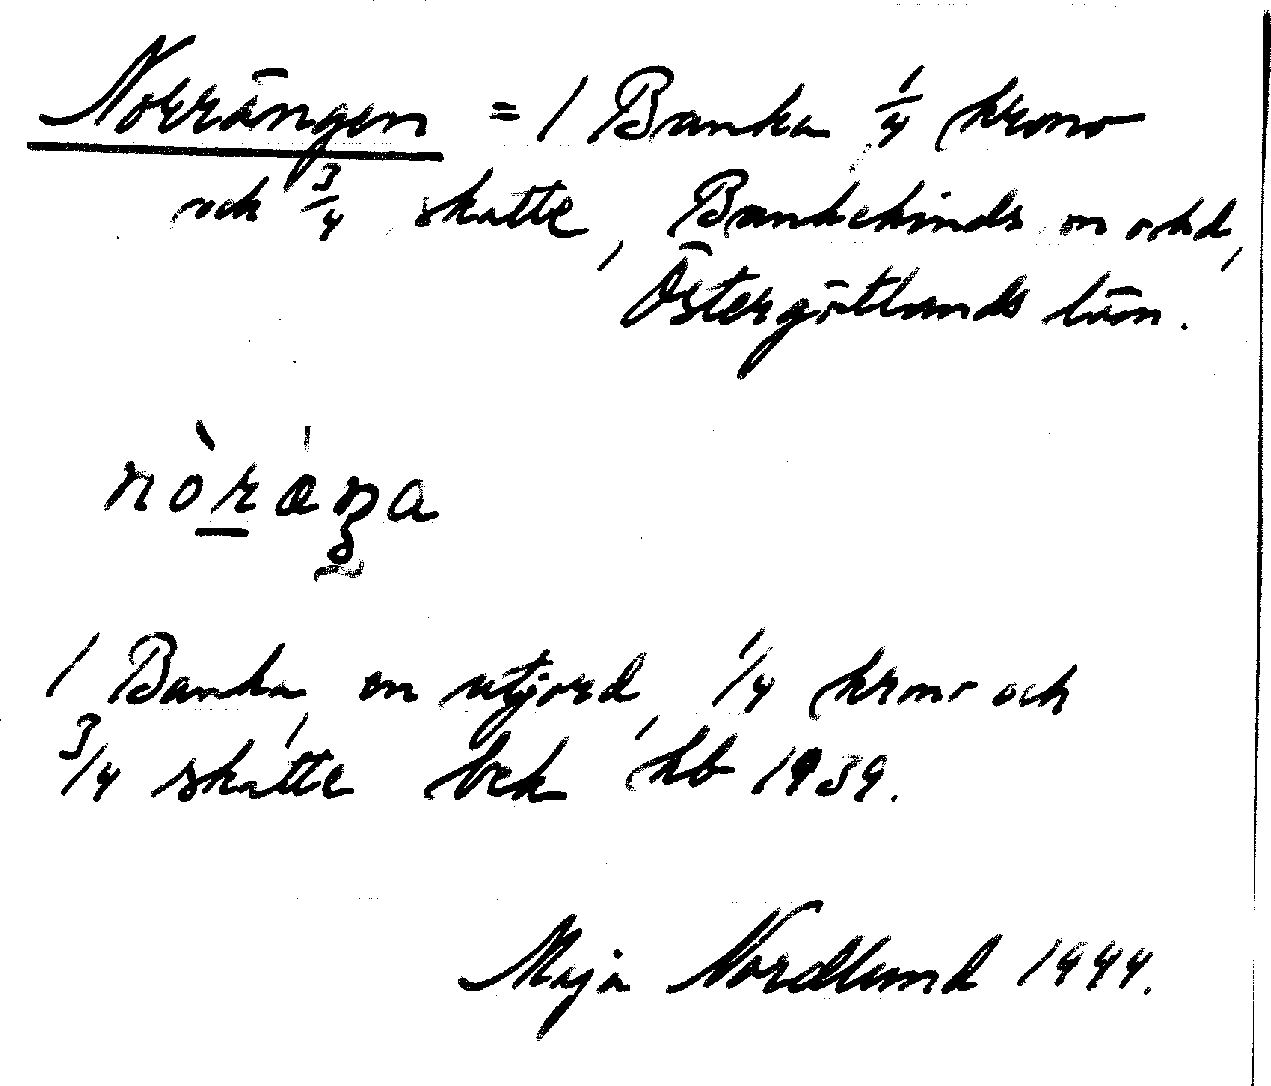 Norrängen = 1 Banka 1/4 krono
och 3/4 skatte, Bankekinds sn o hd,
Östergötlands län.
1 Banka, en utjord, 1/4 krono och
3/4 skatte bek hb 1939.
Maja Nordlund 1944.